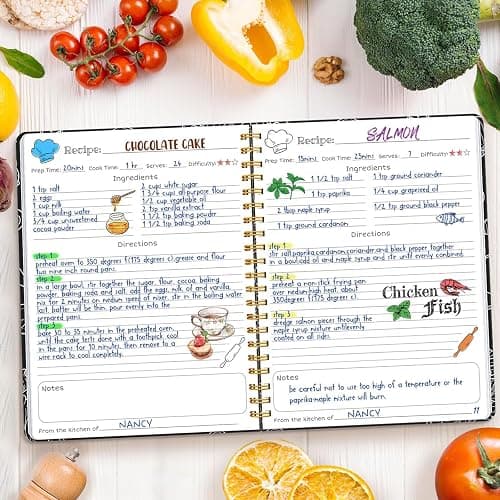 Recipe: CHOCOLATE CAKE
Prep Time: 20mini Cook Time: 1 hr Serves: 24 Difficulty:
Ingredients
1 tsp salt
2 eggs
1 cup milk
1 cup boiling water
3/4 cup unsweetened
cocoa powder
2 cups white sugar
1 3/4 cups all-purpose flour
1/2 cup vegetable oil
2 tsp vanilla extract
1 1/2 tsp baking powder
1 1/2 tsp baking soda
Directions
step 1
preheat oven to 350 degrees f(175 degrees c).grease and flour
two nine inch round pans.
step 2
in a large bowl, stir together the sugar, flour, cocoa, baking
powder, baking soda and salt. add the eggs, milk, oil and vanilla,
mix for 2 minutes on nedum speed of mixer. stir in the boiling water
last. batter will be thin. pour evenly into the
prepared pans.
step 3
bake 30 to 35 minutes in the preheated oven,
until the cake tests done with a toothpick. cool
in the pans for 10 minutes, then remove to a
wire rack to cool completely.
Notes
From the kitchen of NANCY
Recipe: SALMON
Prep Time: 15mini Cook Time: 25mini Serves: 7 Difficulty:
Ingredients
1 1/2 tsp salt
1 tsp paprika
2 tbsp maple syrup
1 tsp ground cardamon
1 tsp ground coriander
1/4 cup grapeseed oil
1/2 tsp ground black pepper
Directions
step 1
stir salt,paprika,cardamon,coriander,and black pepper together
in a bowl.add oil and maple syrup and stir until evenly combined.
step 2
preheat a non-stick frying pan
over nedium high heat, about
350degrees f(175 degrees c).
Chicken
Fish
step 3
dredge salmon pieces through the
maple syrup mixture until evenly
coated on all sides.
Notes
be careful not to use too high of a temperature or the
paprika-maple mixture will burn.
From the kitchen of NANCY
11